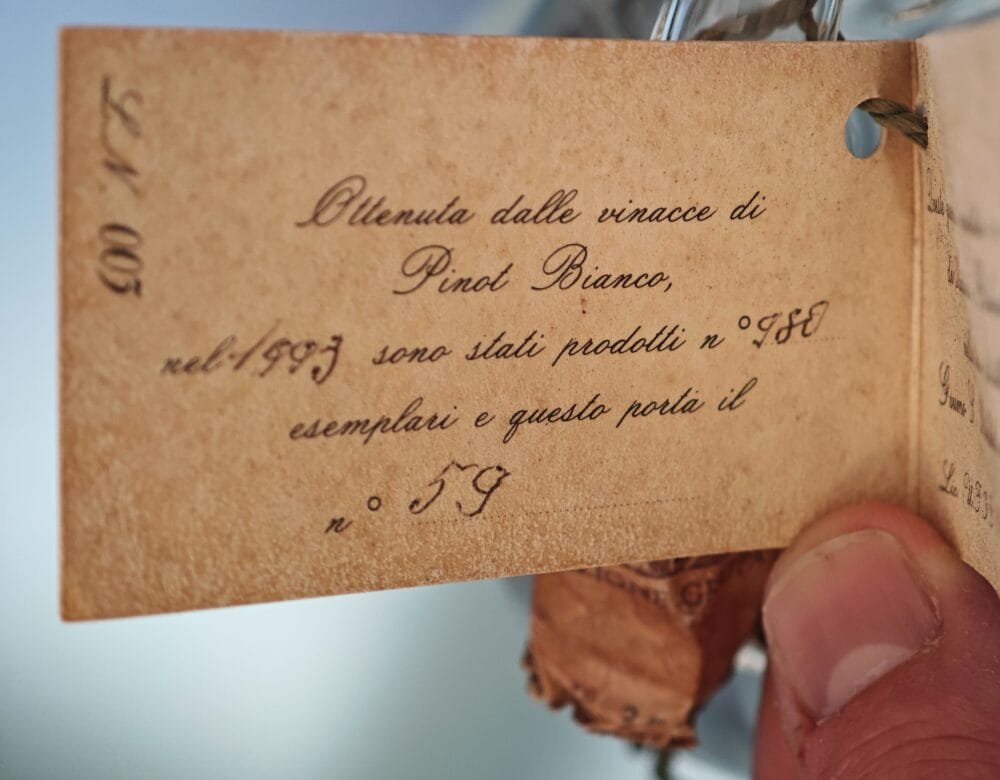 L N 005
Ottenuta dalle vinacce di
Pinot Bianco,
nel 1993 sono stati prodotti n° 980
esemplari e questo porta il
n° 59